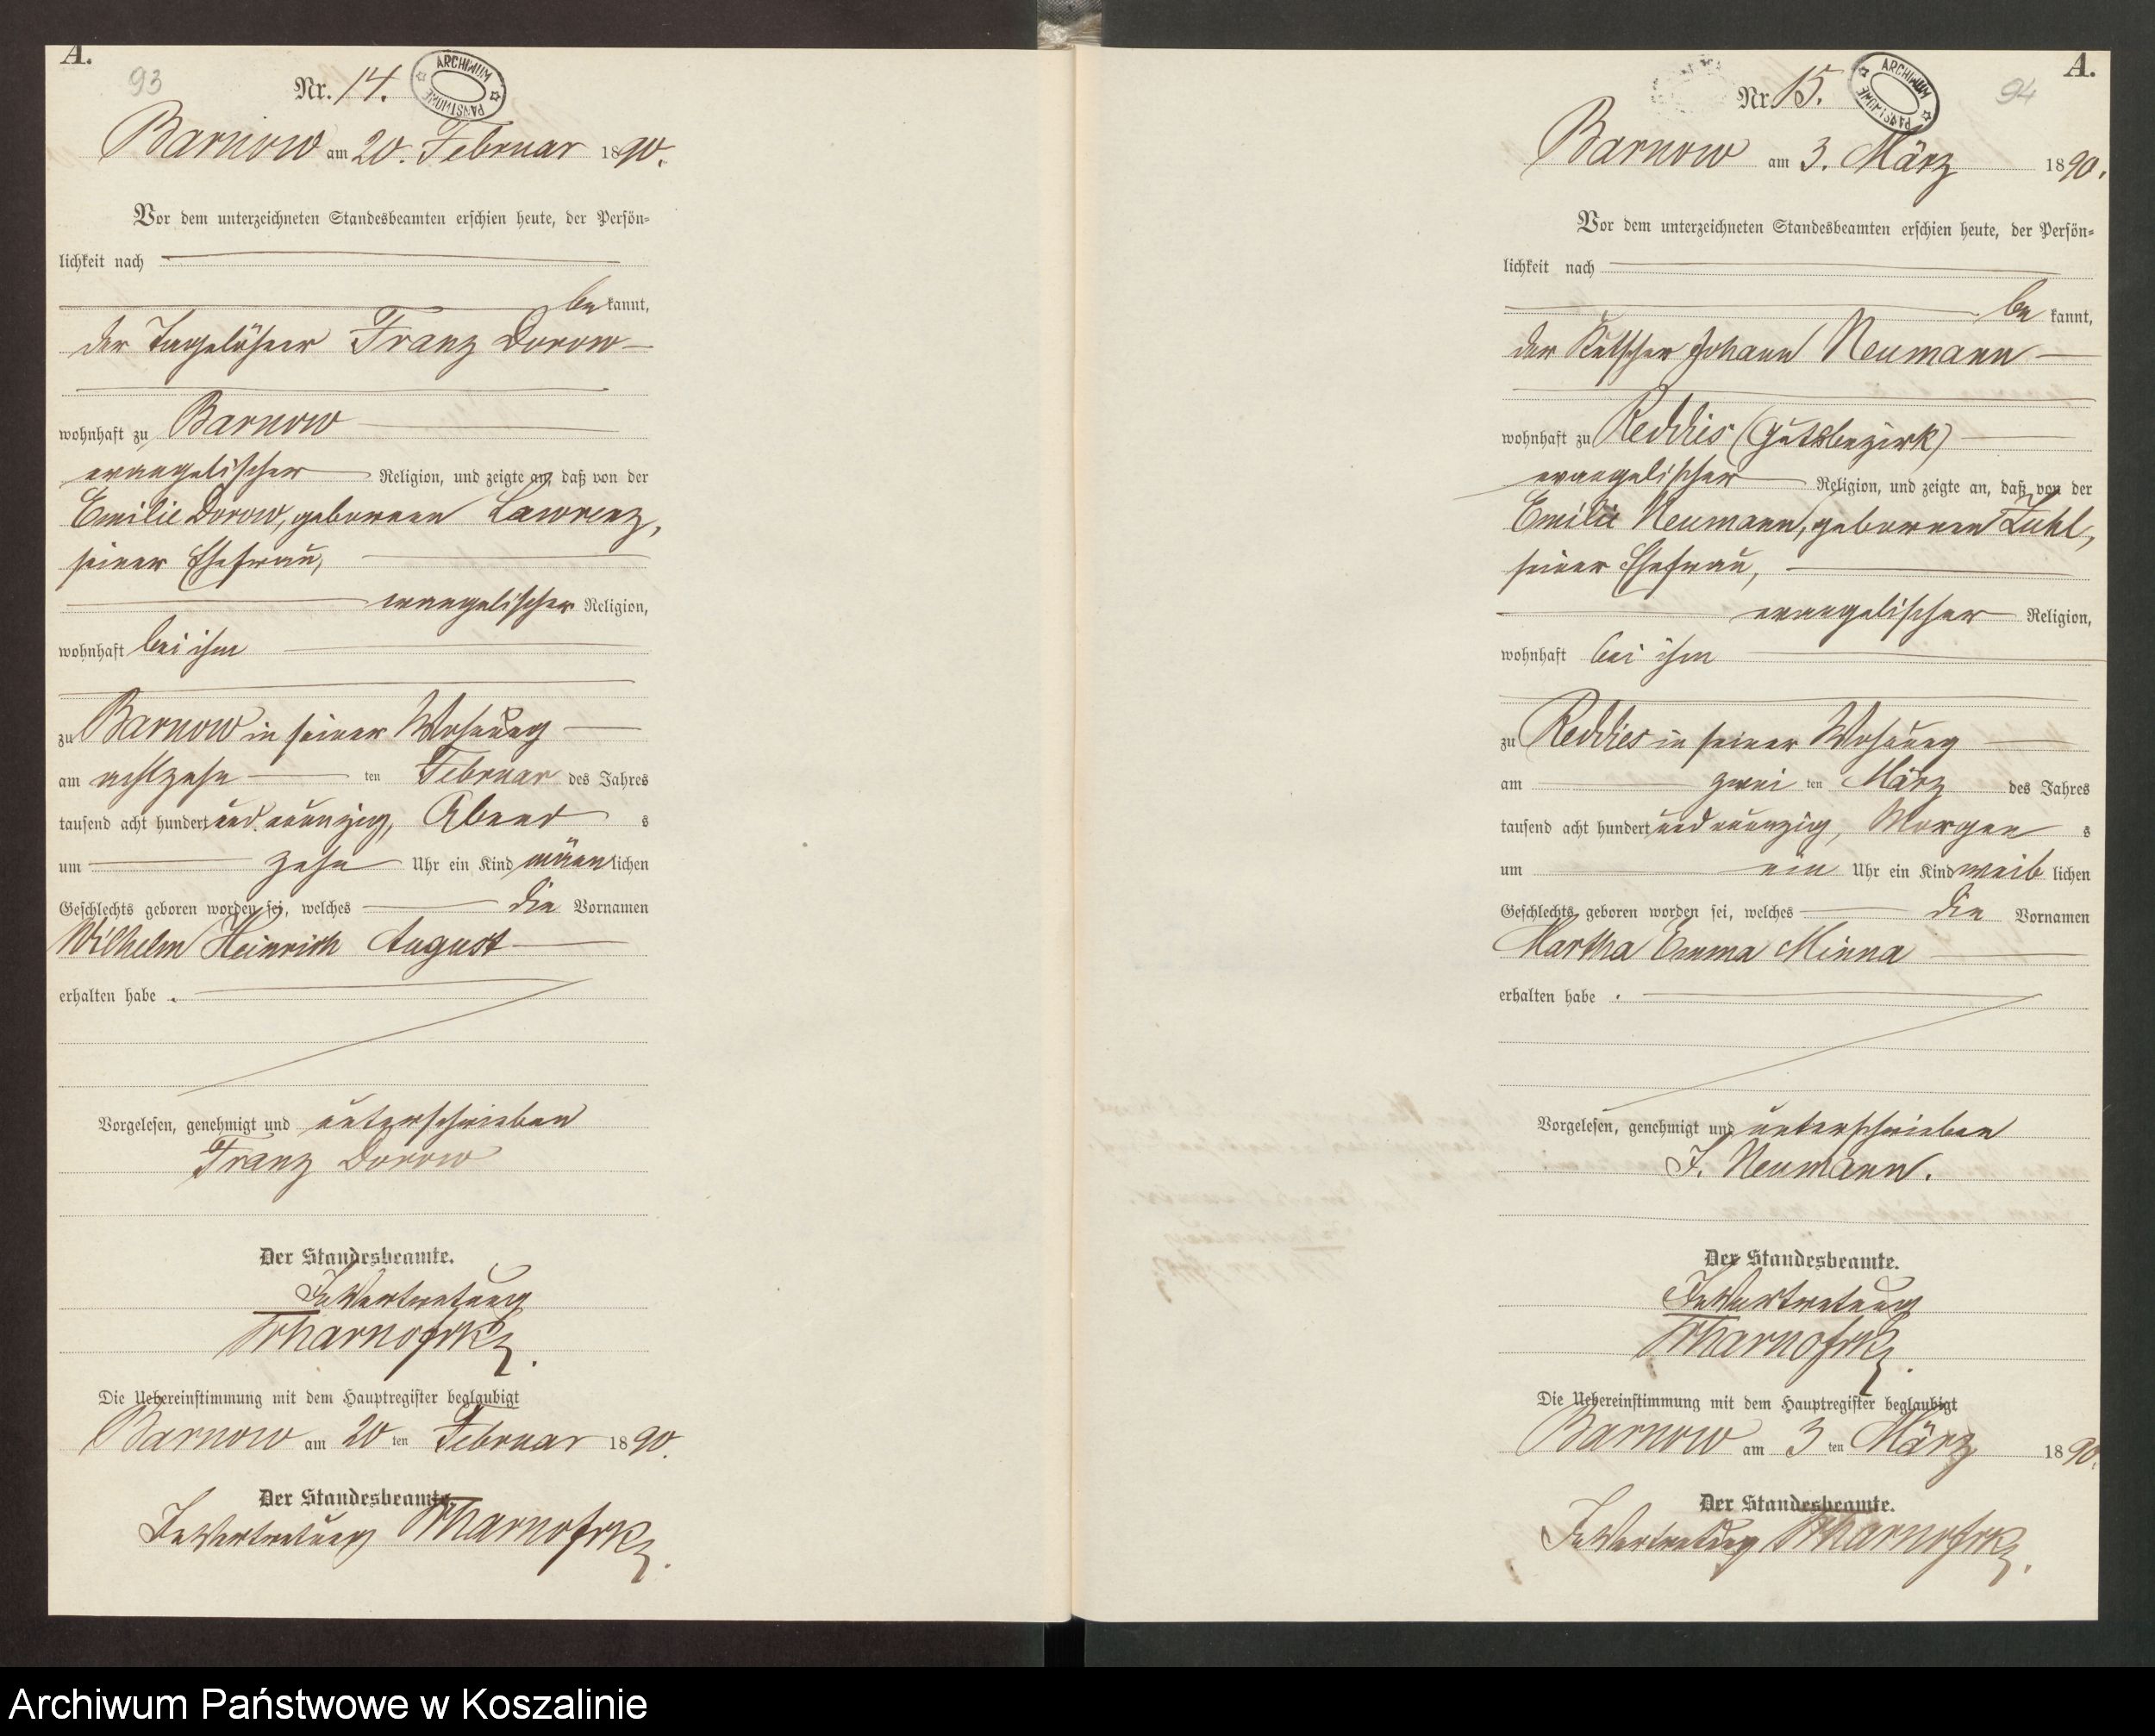 A.
93
Nr. 14.
ARCHIWUM PAŃSTWOWE
Barnow am 20. Februar 1890.
Vor dem unterzeichneten Standesbeamten erschien heute, der Persön-
lichkeit nach
be kannt,
der Tagelöhner Franz Dorow
wohnhaft zu Barnow
evangelischer Religion, und zeigte an, daß von der
Emilie Dorow, geborenen Lawrenz,
seiner Ehefrau,
evangelischer Religion,
wohnhaft bei ihm
zu Barnow in seiner Wohnung
am achtzehn ten Februar des Jahres
tausend acht hundert und neunzig, Abend s
um zehn Uhr ein Kind männ lichen
Geschlechts geboren worden sei, welches die Vornamen
Wilhelm Heinrich August
erhalten habe .
Vorgelesen, genehmigt und unterschrieben
Franz Dorow
Der Standesbeamte.
In Vertretung
Die Uebereinstimmung mit dem Hauptregister beglaubigt
Barnow am 20 ten Februar 1890.
Der Standesbeamte.
In Vertretung
A.
94
Nr. 15.
ARCHIWUM PAŃSTWOWE
Barnow am 3. März 1890.
Vor dem unterzeichneten Standesbeamten erschien heute, der Persön-
lichkeit nach
be kannt,
der Kutscher Johann Neumann
wohnhaft zu Reddies (Gutsbezirk)
evangelischer Religion, und zeigte an, daß von der
Emilie Neumann, geborenen Kuhl,
seiner Ehefrau,
evangelischer Religion,
wohnhaft bei ihm
zu Reddies in seiner Wohnung
am zwei ten März des Jahres
tausend acht hundert und neunzig, Morgen s
um ein Uhr ein Kind weib lichen
Geschlechts geboren worden sei, welches die Vornamen
Martha Emma Minna
erhalten habe .
Vorgelesen, genehmigt und unterschrieben
J. Neumann.
Der Standesbeamte.
In Vertretung
Die Uebereinstimmung mit dem Hauptregister beglaubigt
Barnow am 3 ten März 1890.
Der Standesbeamte.
In Vertretung
Archiwum Państwowe w Koszalinie